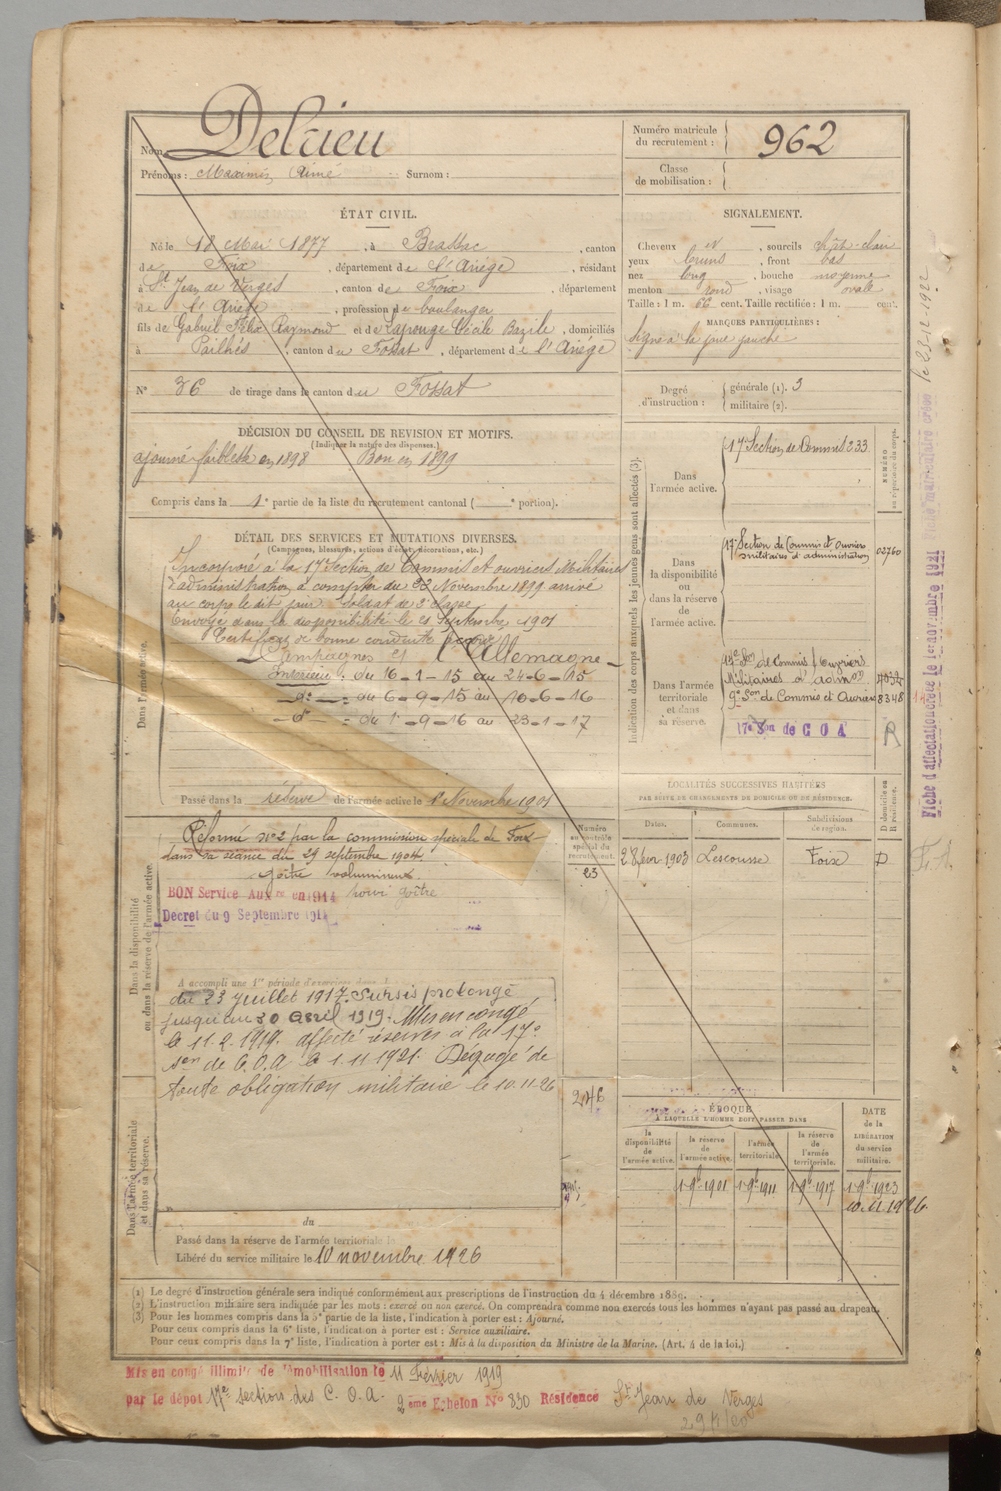 Nom Delrieu
Prénoms : Maximin Aimé Surnom :
Numéro matricule du recrutement : 962
Classe de mobilisation :
ÉTAT CIVIL.
Né le 18 Mai 1877, à Brassac, canton
de Foix, département de l'Ariège, résidant
à St Jean de Verges, canton de Foix, département
de l'Ariège, profession de boulanger
fils de Gabriel Félix Raymond et de Lapouge Cécile Bazile, domiciliés
à Pailhès, canton du Fossat, département de l'Ariège
N° 36 de tirage dans le canton du Fossat
SIGNALEMENT.
Cheveux et, sourcils chât-clair
yeux bruns, front bas
nez long, bouche moyenne
menton rond, visage ovale
Taille : 1 m. 66 cent. Taille rectifiée : 1 m. cent.
MARQUES PARTICULIÈRES :
Signe à la joue gauche
Degré d'instruction : générale (1). 3
militaire (2).
DÉCISION DU CONSEIL DE REVISION ET MOTIFS.
(Indiquer la nature des dispenses.)
ajourné faiblesse en 1898 Bon en 1899
Compris dans la 1e partie de la liste du recrutement cantonal ( e portion).
DÉTAIL DES SERVICES ET MUTATIONS DIVERSES.
(Campagnes, blessures, actions d'éclat, décorations, etc.)
Dans l'armée active.
Incorporé à la 17e Section de Commis et ouvriers Militaires
d'administration à compter du 22 Novembre 1899 arrivé
au corps le dit jour. Soldat de 2e classe
Envoyé dans la disponibilité le 21 Septembre 1901
Certificat de bonne conduite accordé
Campagnes Ct l'Allemagne
Intérieur : du 16-1-15 au 24-6-15
do : du 6-9-15 au 10-6-16
do : du 1-9-16 au 23-1-17
Passé dans la réserve de l'armée active le 1er Novembre 1901
Dans la disponibilité ou dans la réserve de l'armée active
Réformé n°2 par la commission spéciale de Foix
dans sa séance du 29 septembre 1904
goître volumineux
BON Service Auxre en 1914 goître
Decret du 9 Septembre 1914
A accompli une 1re période d'exercices dans
du 23 juillet 1917. Sursis prolongé
jusqu'au 30 avril 1919. Mis en congé
le 11.2.1919. affecté réserves à la 17e
son de C.O.A le 1.11.1921. Dégagé de
toute obligation militaire le 10-11-26
Dans l'armée territoriale et dans sa réserve.
du
Passé dans la réserve de l'armée territoriale le
Libéré du service militaire le 10 novembre 1926
Numéro au contrôle spécial du recrutement.
23
246
Indication des corps auxquels les jeunes gens sont affectés (3).
NUMÉRO au répertoire du corps.
Dans l'armée active.
17e Section de Commis 233
Dans la disponibilité ou dans la réserve de l'armée active.
17e Section de Commis et Ouvriers militaires d'administration 02760
Dans l'armée territoriale et dans sa réserve.
17e Son de Commis / Ouvriers
Militaires d'admon
9e Son de Commis et Ouvriers 8348
17e Son de COA R
LOCALITÉS SUCCESSIVES HABITÉES
PAR SUITE DE CHANGEMENTS DE DOMICILE OU DE RÉSIDENCE.
Dates. Communes. Subdivisions de région. D domicile ou R résidence.
28 févr 1903 Lescousse Foix D
ÉPOQUE
A LAQUELLE L'HOMME DOIT PASSER DANS
la disponibilité de l'armée active.
la réserve de l'armée active.
l'armée territoriale.
la réserve de l'armée territoriale.
DATE de la LIBÉRATION du service militaire.
1 9b 1901 1 9b 1911 1 9b 1917 1 9b 1923
10.11.1926
(1) Le degré d'instruction générale sera indiqué conformément aux prescriptions de l'instruction du 4 décembre 1889.
(2) L'instruction militaire sera indiquée par les mots : exercé ou non exercé. On comprendra comme non exercés tous les hommes n'ayant pas passé au drapeau.
(3) Pour les hommes compris dans la 5e partie de la liste, l'indication à porter est : Ajourné.
Pour ceux compris dans la 6e liste, l'indication à porter est : Service auxiliaire.
Pour ceux compris dans la 7e liste, l'indication à porter est : Mis à la disposition du Ministre de la Marine. (Art. 4 de la loi.)
Mis en congé illimité de démobilisation le 11 Février 1919
par le dépôt 17e section des C.O.A. 2ème Echelon N° 830 Résidence St Jean de Verges
Fiche d'affectation créée le 1er novembre 1921 Fiche matriculaire créée le 23-12-1922